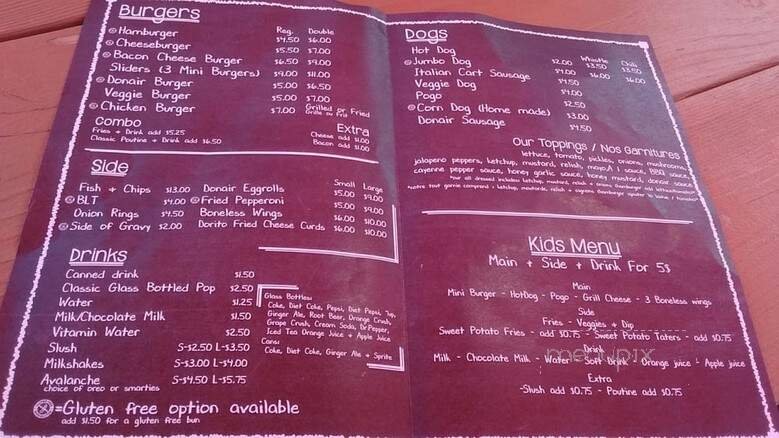 Burgers
Reg. Double
Hamburger $4.50 $6.00
Cheeseburger $5.50 $7.00
Bacon Cheese Burger $6.50 $9.00
Sliders (3 Mini Burgers) $9.00 $11.00
Donair Burger $5.00 $6.50
Veggie Burger $5.00 $7.00
Chicken Burger $7.00 Grilled or Fried
Grille ou Frit
Combo
Fries + Drink add $5.25
Classic Poutine + Drink add $6.50
Extra
Cheese add $1.00
Bacon add $1.00
Side
Small Large
Fish + Chips $13.00 Donair Eggrolls $5.00 $9.00
BLT $4.00 Fried Pepperoni $5.00 $9.00
Onion Rings $4.50 Boneless Wings $6.00 $10.00
Side of Gravy $2.00 Dorito Fried Cheese Curds $6.00 $10.00
Drinks
Canned drink $1.50
Classic Glass Bottled Pop $2.50
Water $1.25
Milk/Chocolate Milk $1.50
Vitamin Water $2.50
Slush S-$2.50 L-$3.50
Milkshakes S-$3.00 L-$4.00
Avalanche S-$4.50 L-$5.75
choice of oreo or smarties
Glass Bottles:
Coke, Diet Coke, Pepsi, Diet Pepsi, 7up,
Ginger Ale, Root Beer, Orange Crush,
Grape Crush, Cream Soda, Dr.Pepper,
Iced Tea Orange Juice + Apple Juice
Cans:
Coke, Diet Coke, Ginger Ale + Sprite
=Gluten free option available
add $1.50 for a gluten free bun
Dogs
Whistle Chili
Hot Dog $2.00 $3.50 $3.50
Jumbo Dog $4.00 $6.00 $6.00
Italian Cart Sausage $4.50
Veggie Dog $4.00
Pogo $2.50
Corn Dog (Home made) $3.00
Donair Sausage $4.50
Our Toppings / Nos Garnitures
lettuce, tomato, pickles, onions, mushrooms,
jalapeno peppers, ketchup, mustard, relish, mayo, A1 sauce, BBQ sauce,
cayenne pepper sauce, honey garlic sauce, honey mustard, donair sauce
Kids Menu
Main + Side + Drink For 5$
Main
Mini Burger - HotDog - Pogo - Grill Cheese - 3 Boneless wings
Side
Fries - Veggies + Dip
Sweet Potato Fries - add $0.75 - Sweet Potato Taters - add $0.75
Drink
Milk - Chocolate Milk - Water - Soft Drink - Orange juice - Apple juice
Extra
-Slush add $0.75 - Poutine add $0.75
menupix